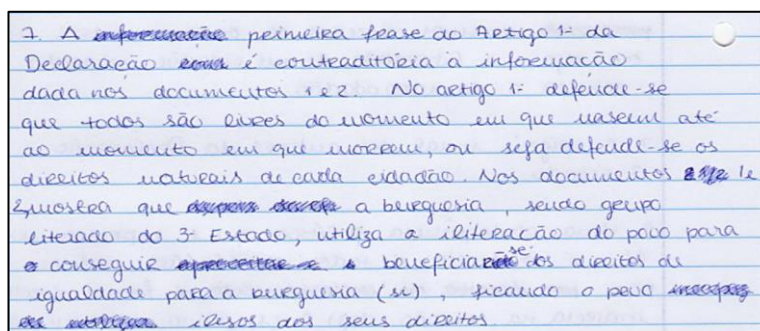 7. A primeira frase do Artigo 1º da
Declaração é contraditória à informação
dada nos documentos 1 e 2. No artigo 1º defende-se
que todos são livres do momento em que nascem até
ao momento em que morrem, ou seja defende-se os
direitos naturais de cada cidadão. Nos documentos 1 e
2 mostra que a burguesia, sendo grupo
literado do 3º Estado, utiliza a iliteração do povo para
conseguir beneficiar-se dos direitos de
igualdade para a burguesia (si), ficando o povo
ilesos dos seus direitos.